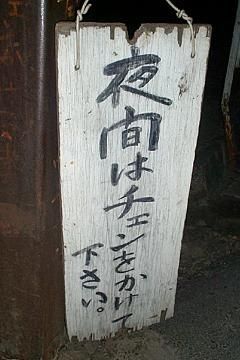 夜間はチェンをかけて
下さい。